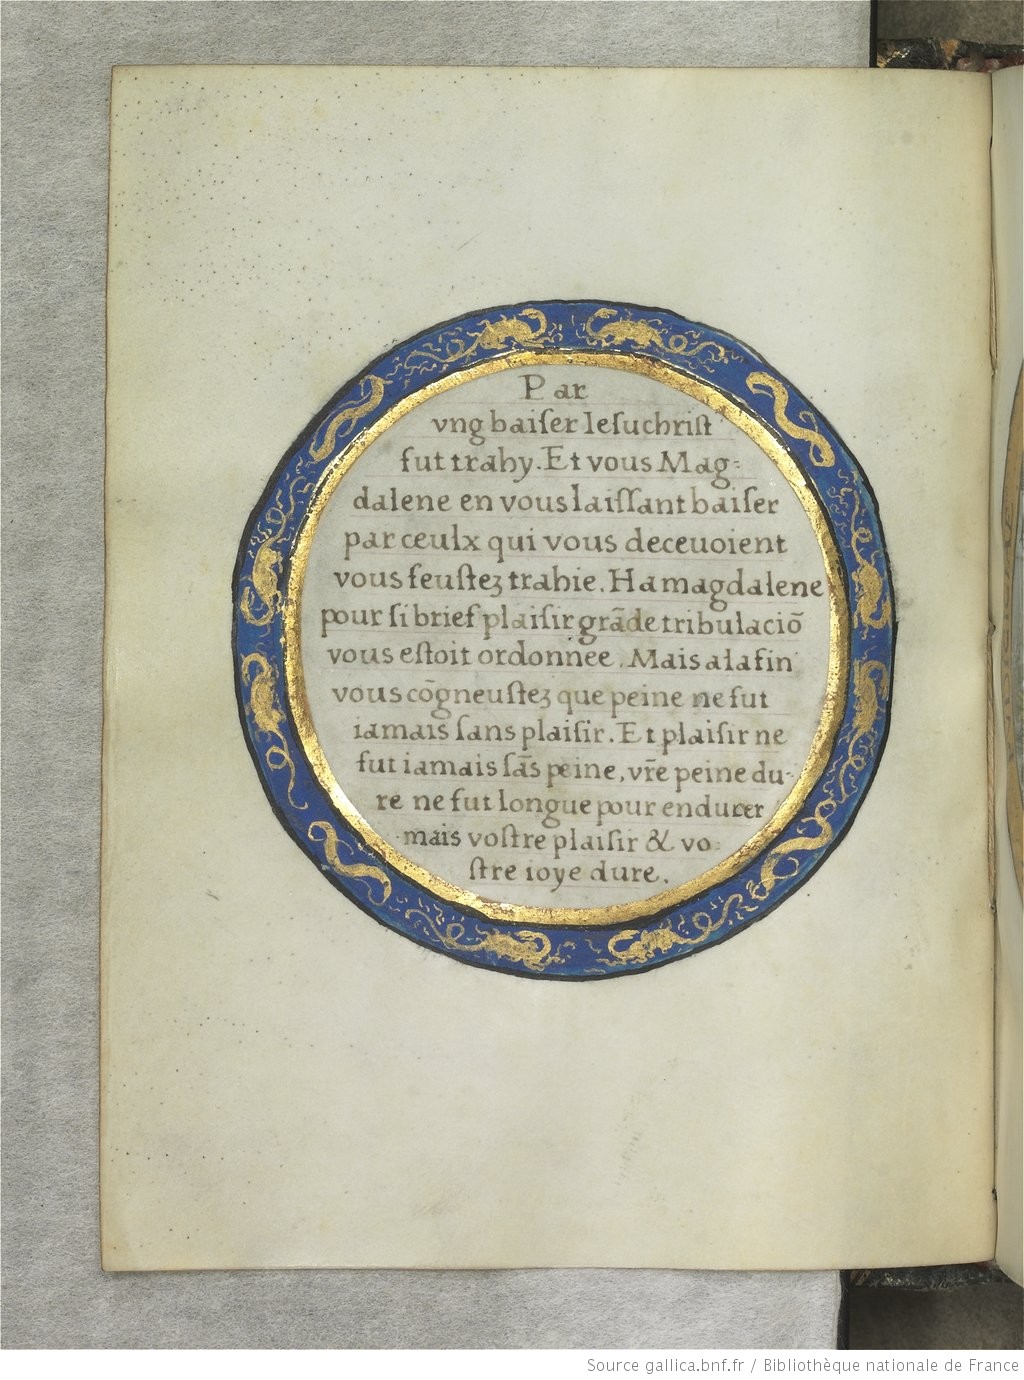 Par
vng baiſer Ieſuchriſt
fut trahy. Et vous Mag-
dalene en vous laiſſant baiſer
par ceulx qui vous deceuoient
vous feuſtez trahie. Ha magdalene
pour ſi brief plaiſir grãde tribulaciõ
vous eſtoit ordonnée. Mais a la fin
vous cõgneuſtez que peine ne fut
iamais ſans plaiſir. Et plaiſir ne
fut iamais ſãs peine, vr̃e peine du-
re ne fut longue pour endurer
mais voſtre plaiſir & vo-
ſtre ioye dure.
Source gallica.bnf.fr / Bibliothèque nationale de France